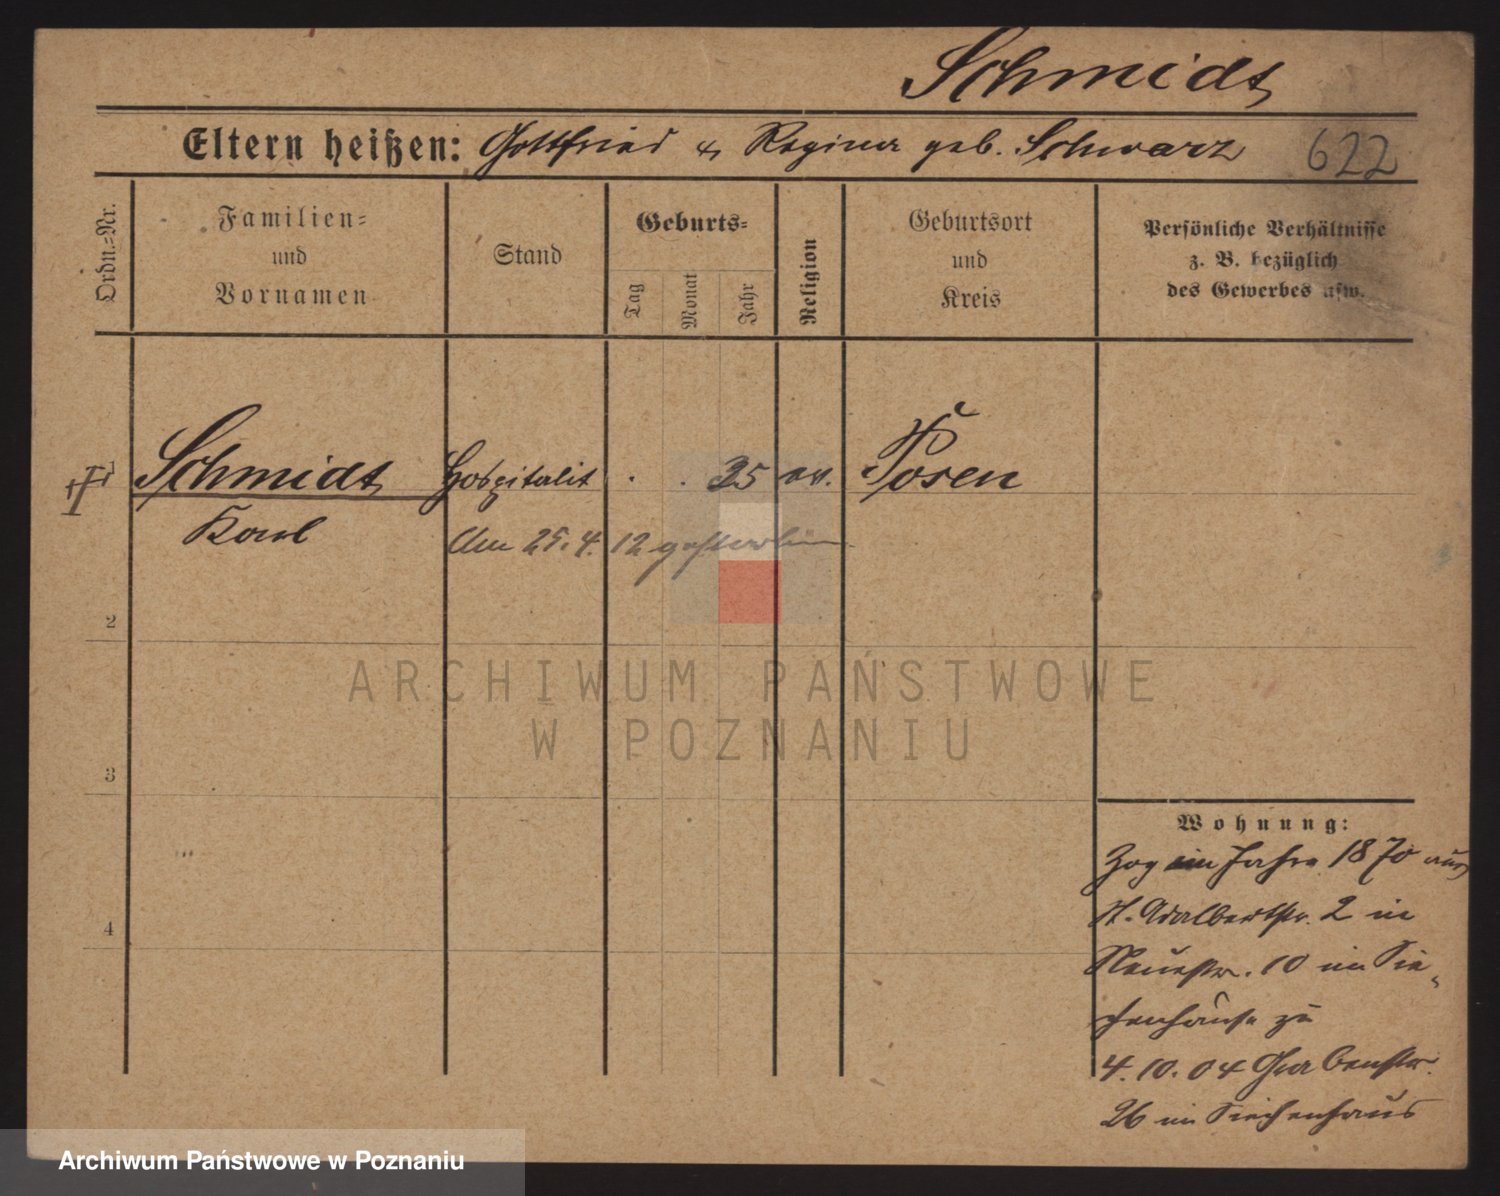 Schmidt
Eltern heißen: Gottfried & Regina geb. Schwarz 622
Ordn.-Nr.
Familien-
und
Vornamen
Stand
Geburts-
Tag
Monat
Jahr
Religion
Geburtsort
und
Kreis
Persönliche Verhältnisse
z. B. bezüglich
des Gewerbes usw.
1 Schmidt Hospitalit . . 25 ev. Posen
Karl Am 25.4.12 gestorben
2
3
4
ARCHIWUM PAŃSTWOWE
W POZNANIU
Wohnung:
Zog im Jahre 1870 aus
St. Adalbertstr. 2 in
Neuestr. 10 im Sie-
chenhause zu
4.10.04 Grabenstr.
26 im Siechenhaus
Archiwum Państwowe w Poznaniu